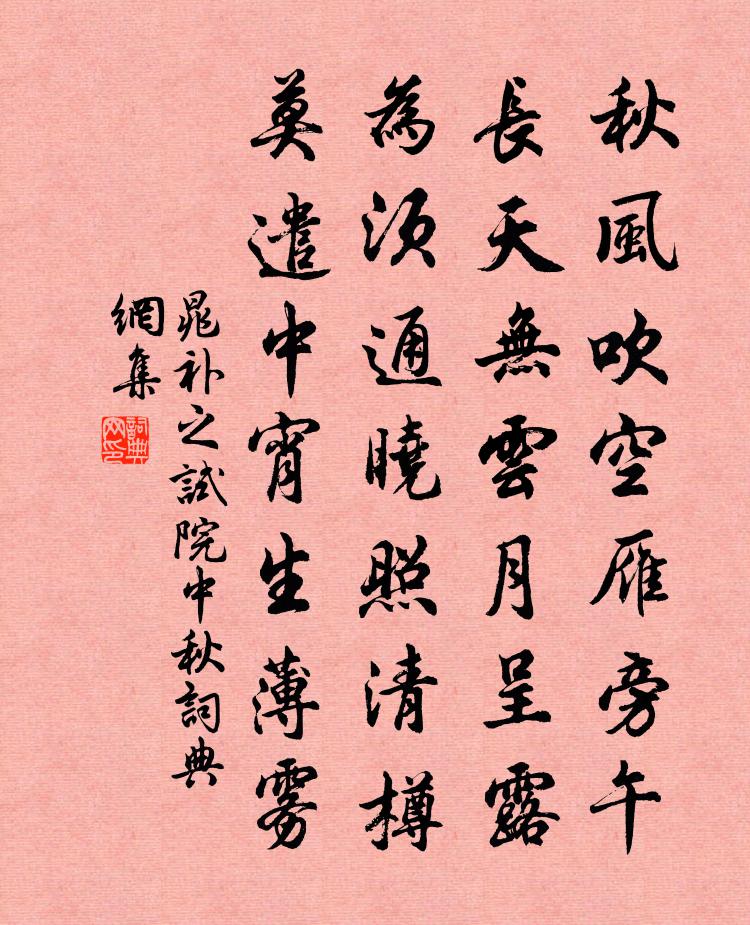 秋風吹空雁旁午
長天無雲月呈露
為須通曉照清樽
莫遣中宵生薄雾
晁补之試院中秋詞典
網集
詞典
网印